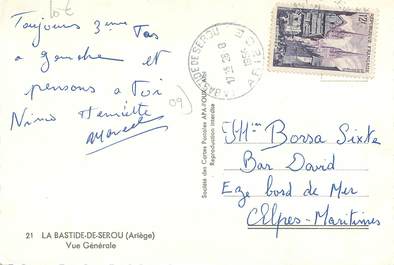 Toujours 3ème Tas
a gauche et
pensons a Toi
Nino Henriette
Marcel
09
21 LA BASTIDE-DE-SEROU (Ariège)
Vue Générale
Société des Cartes Postales APA-POUX, Albi
Reproduction interdite
BASTIDE DE SEROU
17 35 28 8
1955
ARIEGE
12F
Borsa Sixte
Bar David
Eze bord de Mer
Alpes-Maritimes